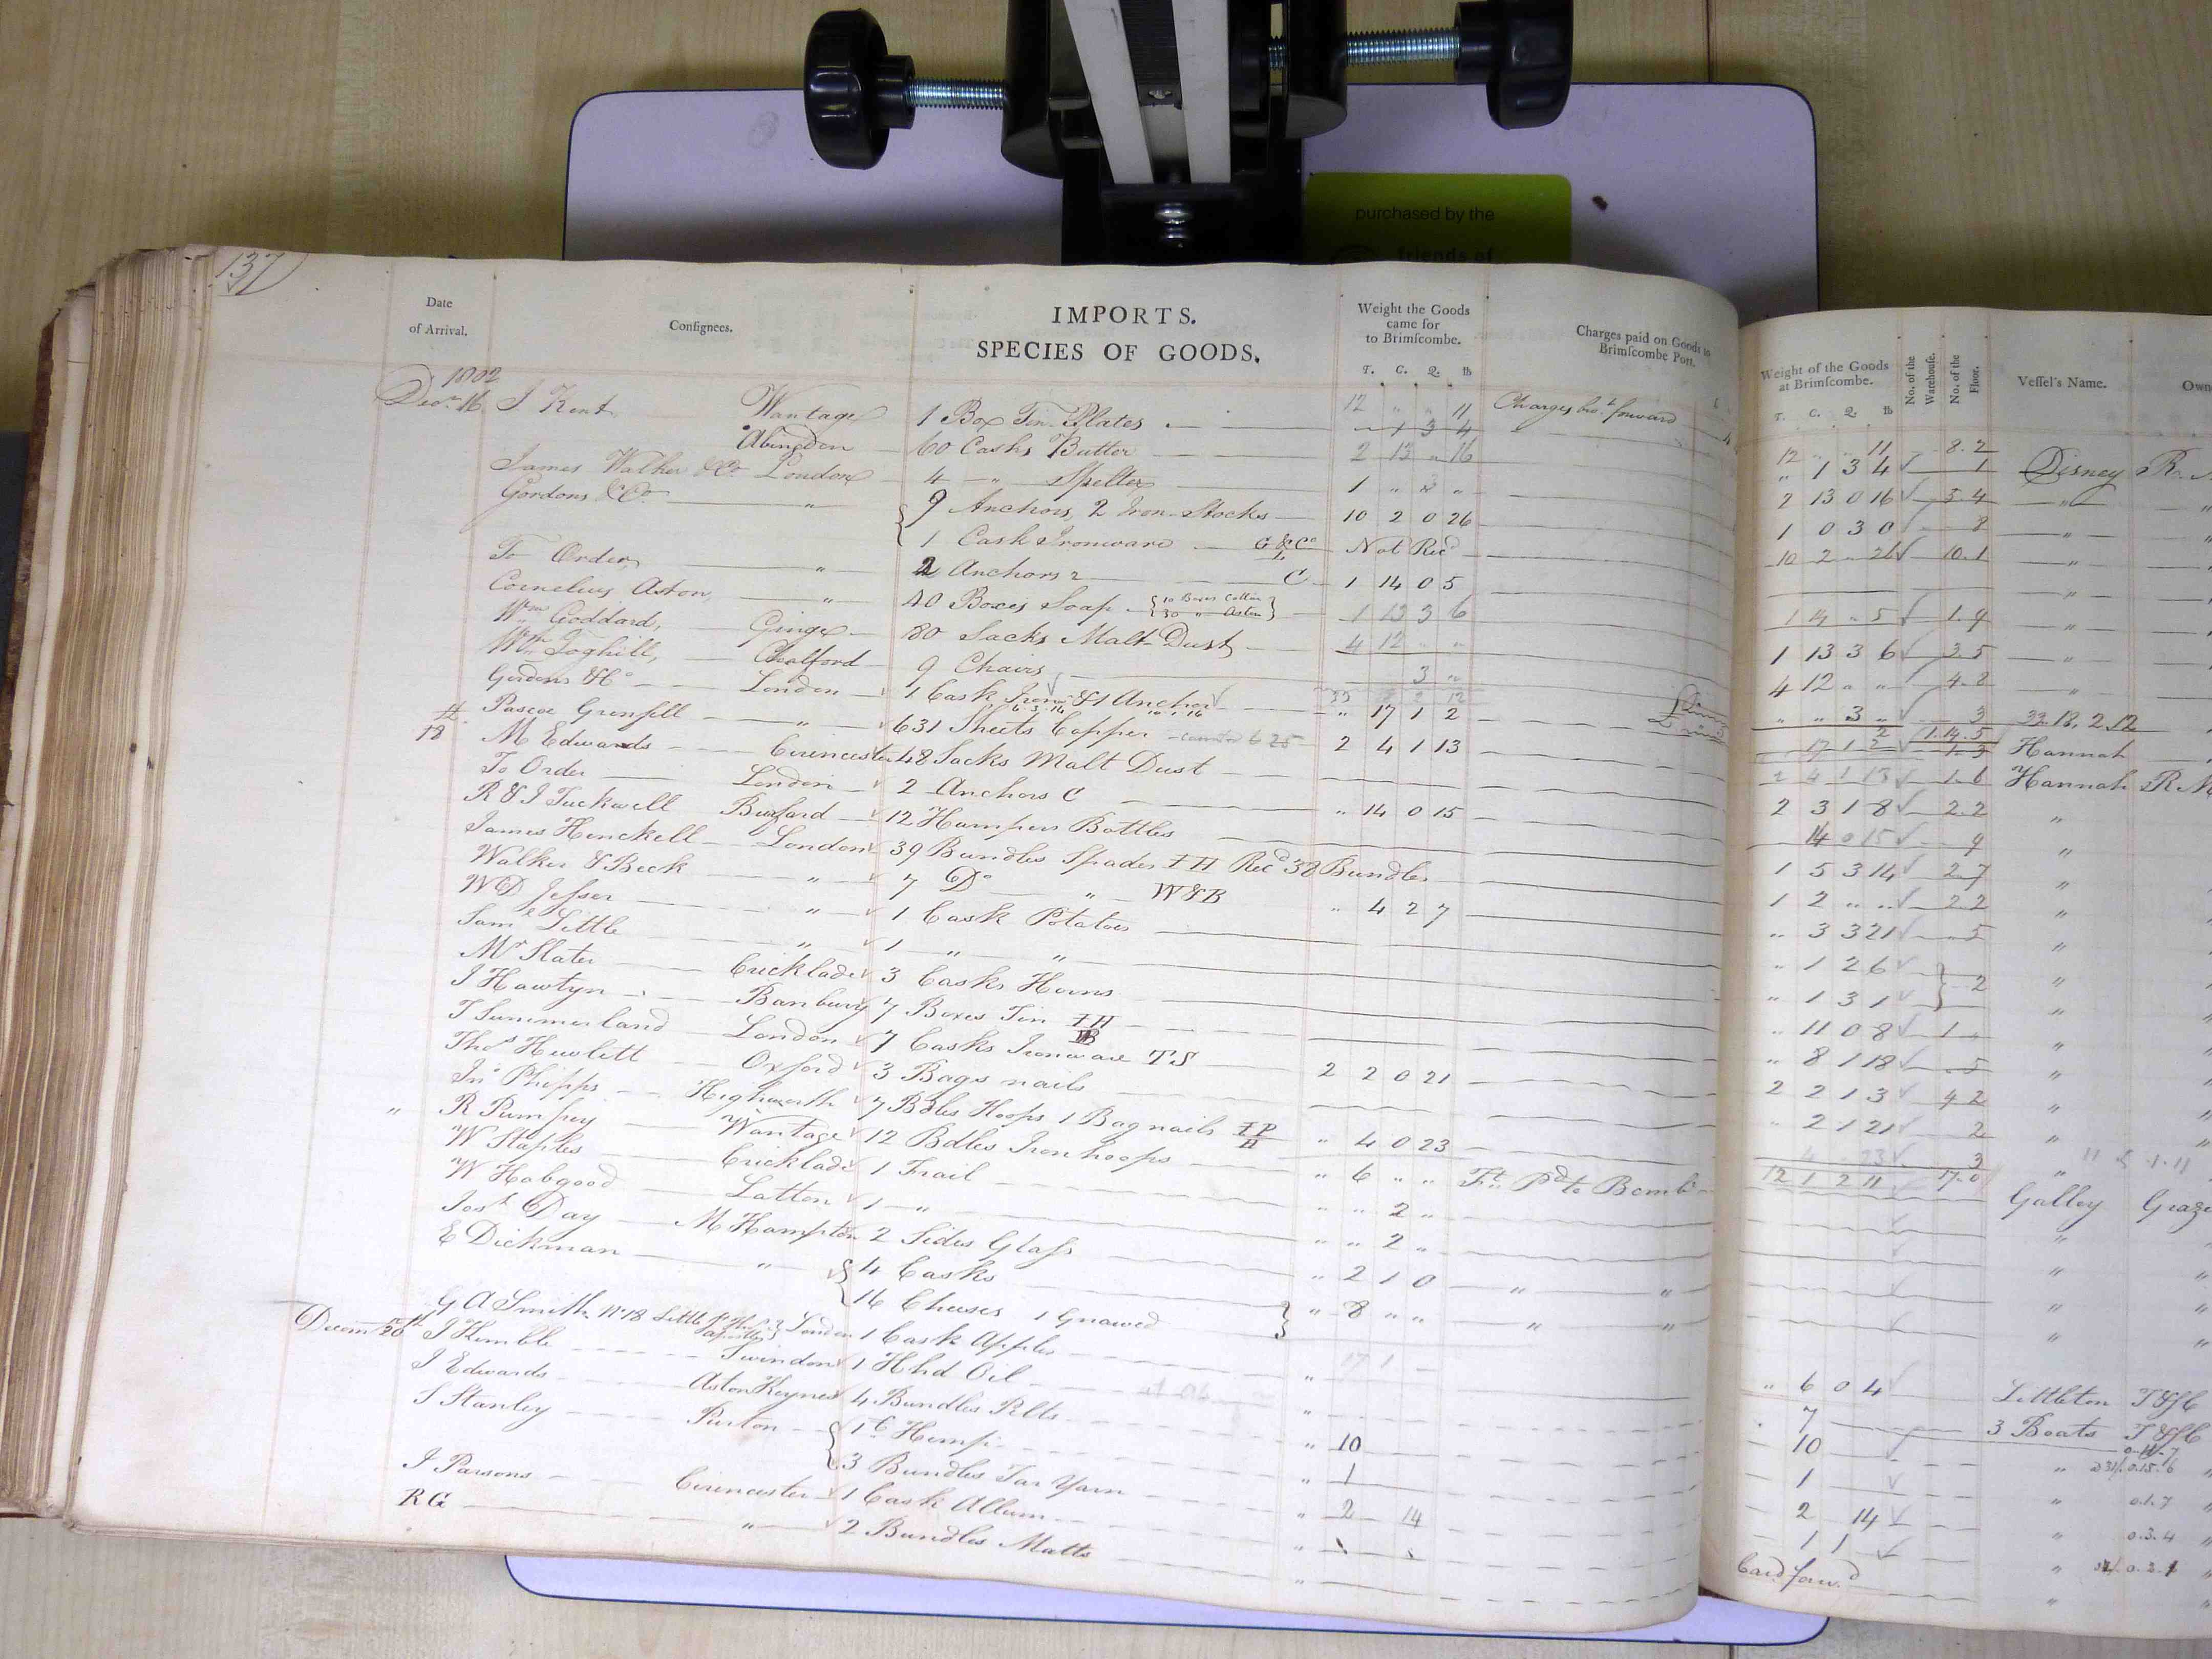 purchased by the
friends of
137
Date of Arrival.
Consignees.
IMPORTS.
SPECIES OF GOODS.
Weight the Goods came for to Brimscombe.
T. C. Q. lb
Charges paid on Goods to Brimscombe Port.
Weight of the Goods at Brimscombe.
T. C. Q. lb
No. of the Warehouse.
No. of the Floor.
Vessel's Name.
Own
1802
12 " " 11 Charges bro.t forward 12 " " 11 8.2
Decr. 16 J Kent Wantage 1 Box Tin Plates " 1 3 4 " 1 3 4 1 Disney R.
Abingdon 60 Casks Butter 2 13 " 16 2 13 0 16 5.4 "
James Walker & Co London 4 " Spelter 1 " " 1 0 3 0 8 "
Gordons & Co " 9 Anchors, 2 Iron Stocks 10 2 0 26 10 2 " 26 10.1 "
1 Cask Ironware G & Co Not Recd
To Order, " 2 Anchors 2 C 1 14 0 5 1 14 " 5 1.9 "
Cornelius Aston, " 40 Boxes Soap 10 Boxes Cotton 30 " Aston 1 13 3 6 1 13 3 6 3.5 "
Wm Goddard, Ginge 80 Sacks Malt Dust 4 12 " " 4 12 " " 4.8 "
Wm Toghill, Chalford 9 Chairs 3 " " " 3 " 3 33.18.2.12
Gordons & Co London 1 Cask Iron & 1 Anchor " 17 1 2 17 1 2 Hannah
Pascoe Grenfell " 631 Sheets Copper 625 2 4 1 13 2 4 1 13 1.6 Hannah R M
18 M Edwards Cirencester 48 Sacks Malt Dust 2 3 1 8 2.2 "
To Order London 2 Anchors C " 14 0 15 14 0 15 9 "
R & J Tuckwell Burford 12 Hampers Bottles 1 5 3 14 2.7 "
James Henckell London 39 Bundles Spades I H Recd 38 Bundles 1 2 " " 2.2 "
Walker & Beck " 7 Do " W&B " 4 2 7 " 3 3 21 5 "
W D Jesser " 1 Cask Potatoes " 1 2 6 2 "
Saml Little " 1 " " " 1 3 1 "
Mr Slater Cricklade 3 Casks Horns " 11 0 8 1 "
J Hawtyn Banbury 7 Boxes Tin I H B " 8 1 18 .5 "
T Summerland London 7 Casks Ironware T S 2 2 0 21 2 2 1 3 4 2 "
Thos Hewlett Oxford 3 Bags nails " 2 1 21 2 "
Jno Phipps Highworth 7 Bdles Hoops 1 Bag nails I P H " 4 0 23 4 " 23 3 "
" R Pumfrey Wantage 12 Bdles Iron hoops " 6 " " Ft Pd to Bcomb 12 1 2 11 17.0 Galley Graze
W Staples Cricklade 1 Frail " " 2 " "
W Habgood Latton 1 " " " 2 " "
Josh Day M Hampton 2 Sides Glass " 2 1 0 " " "
E Dickman " 4 Casks
16 Cheeses 1 Gnawed " 8 " " " " "
G A Smith No 18 Little London 1 Cask Apples 17 1
Decemr 20th J Kemble Swindon 1 Hhd Oil " " 6 0 4 Littleton T & J C
J Edwards Aston Keynes 4 Bundles Pelts " 7 3 Boats T & J C
S Stanley Purton 1 C Hemp " 10 10 "
3 Bundles Tar Yarn " 1 1 " 0.1.7
J Parsons Cirencester 1 Cask Allum " 2 14 2 14 " 0.3.4
RG " 2 Bundles Matts " 1 1 "
Card forwd